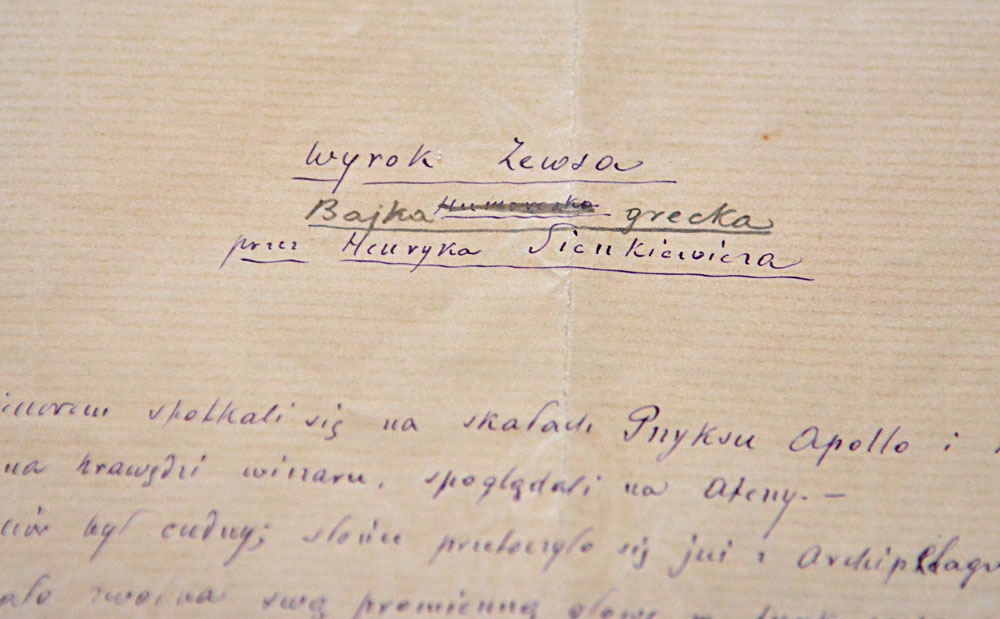 Wyrok Zewsa
Bajka Humoreska grecka
przez Henryka Sienkiewicza
spotkali się na skałach Pnyksu Apollo i
na krawędzi wiszaru, spoglądali na Ateny.—
był cudny; słońce przetoczyło się już z Archipelagu
zwolna swą promienną głowę w